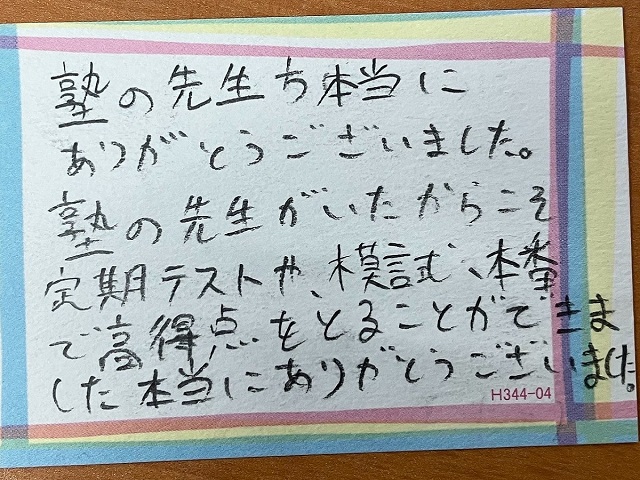 塾の先生方本当に
ありがとうございました。
塾の先生がいたからこそ
定期テストや、模試、本番
で高得点をとることができま
した本当にありがとうございました。
H344-04